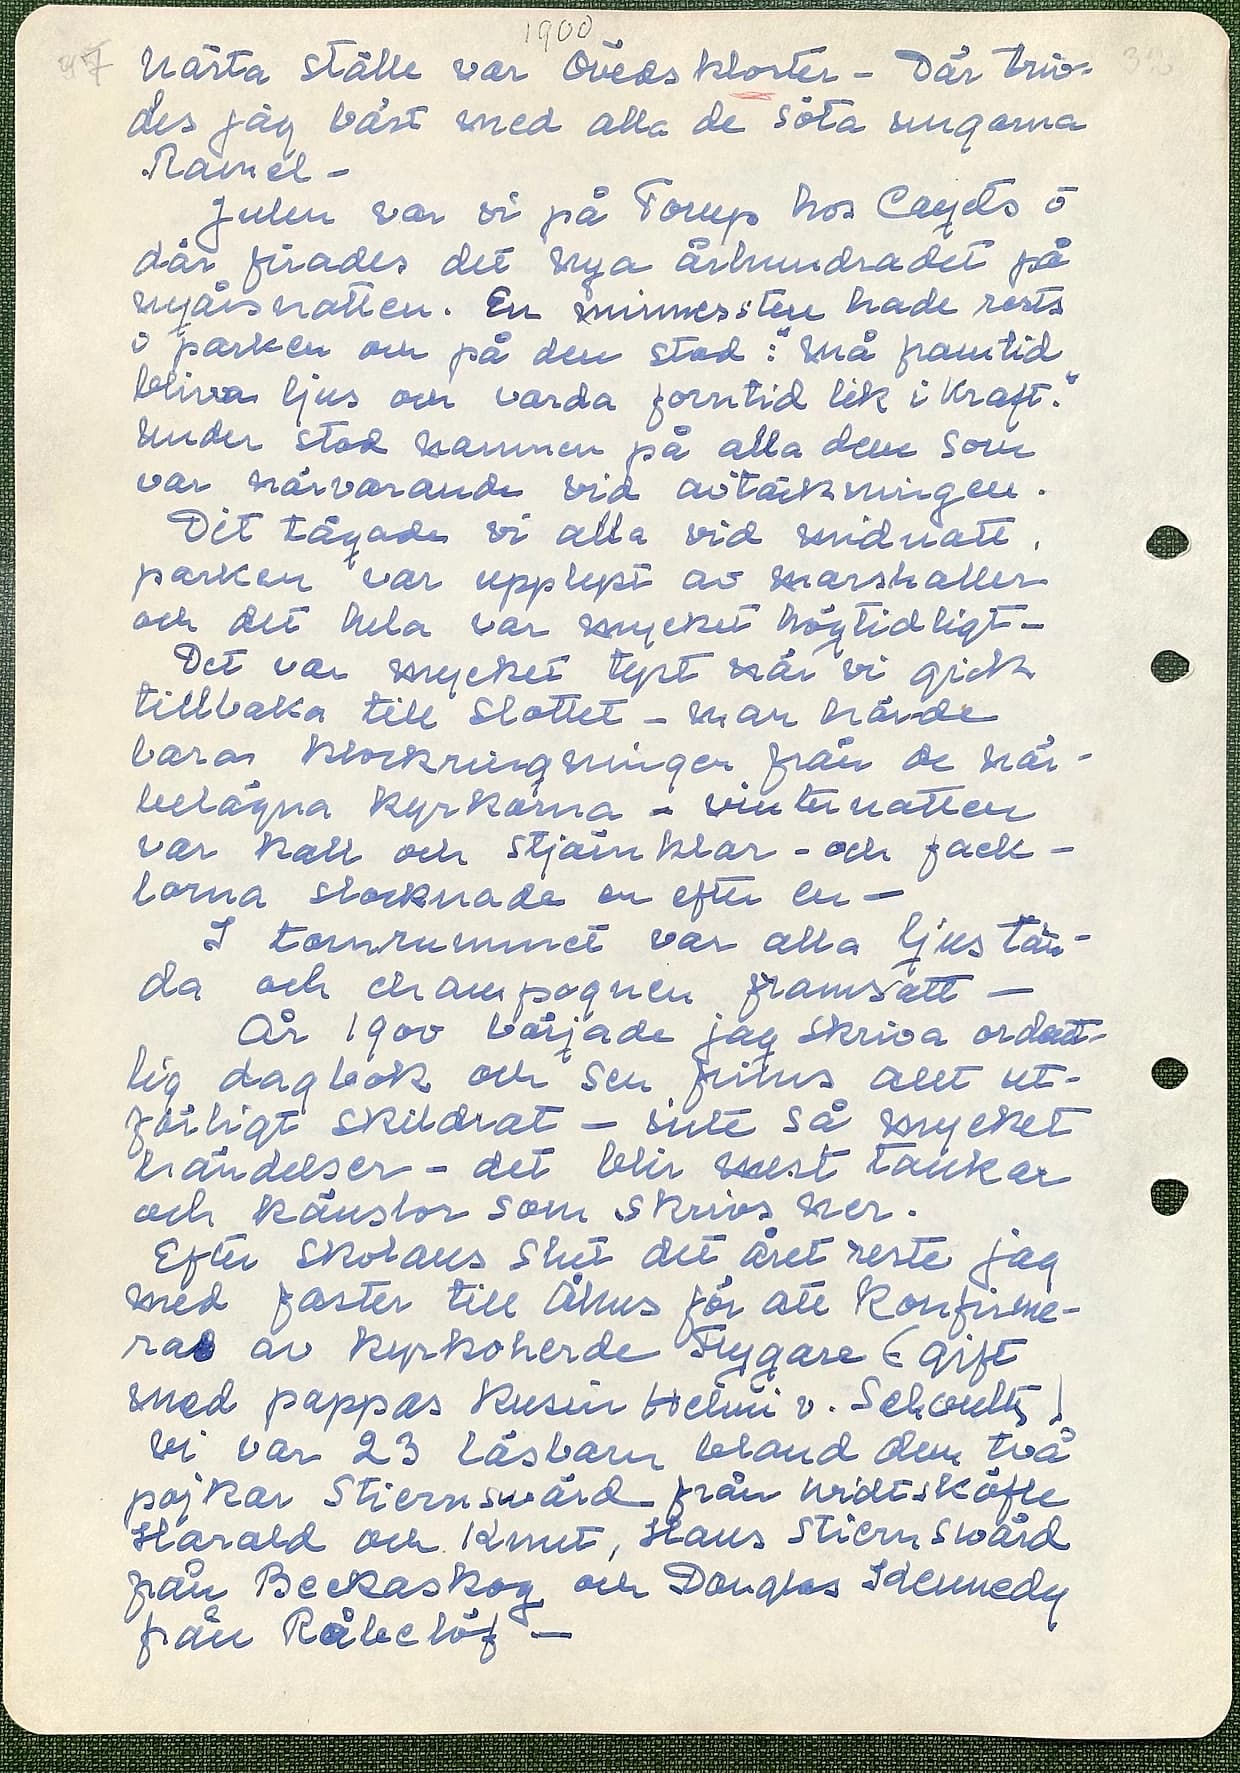 1900
Nästa ställe var Övedskloster - Där triv-
des jag bäst med alla de söta ungarna
Ramel -
Julen var vi på Torup hos Coyets o
där firades det nya århundradet på
nyårsnatten. En minnessten hade rests
i parken och på den stod: "Må framtid
bliva ljus och varda forntid lik i Kraft."
Under stod namnen på alla dem som
var närvarande vid avtäckningen.
Dit tågade vi alla vid midnatt,
parken var upplyst av marschaller
och det hela var mycket högtidligt -
Det var mycket tyst när vi gick
tillbaka till Slottet - man hörde
bara klockringningen från de när-
belägna kyrkorna - vinternatten
var kall och stjärnklar - och fack-
lorna slocknade en efter en -
I tornrummet var alla ljus tän-
da och champagnen framsatt -
År 1900 började jag skriva ordent-
lig dagbok och sen finns allt ut-
förligt skildrat - inte så mycket
händelser - det blir mest tankar
och känslor som skrivs ner.
Efter skolans slut det året reste jag
med faster till Åhus för att konfirme-
ras av kyrkoherde Flygare (gift
med pappas kusin Helmi v. Schoultz)
Vi var 23 läsbarn bland dem två
pojkar Stiernswärd från Widtsköfle
Harald och Knut, Hans Stiernswärd
från Beckaskog och Douglas Kennedy
från Råbelöf -